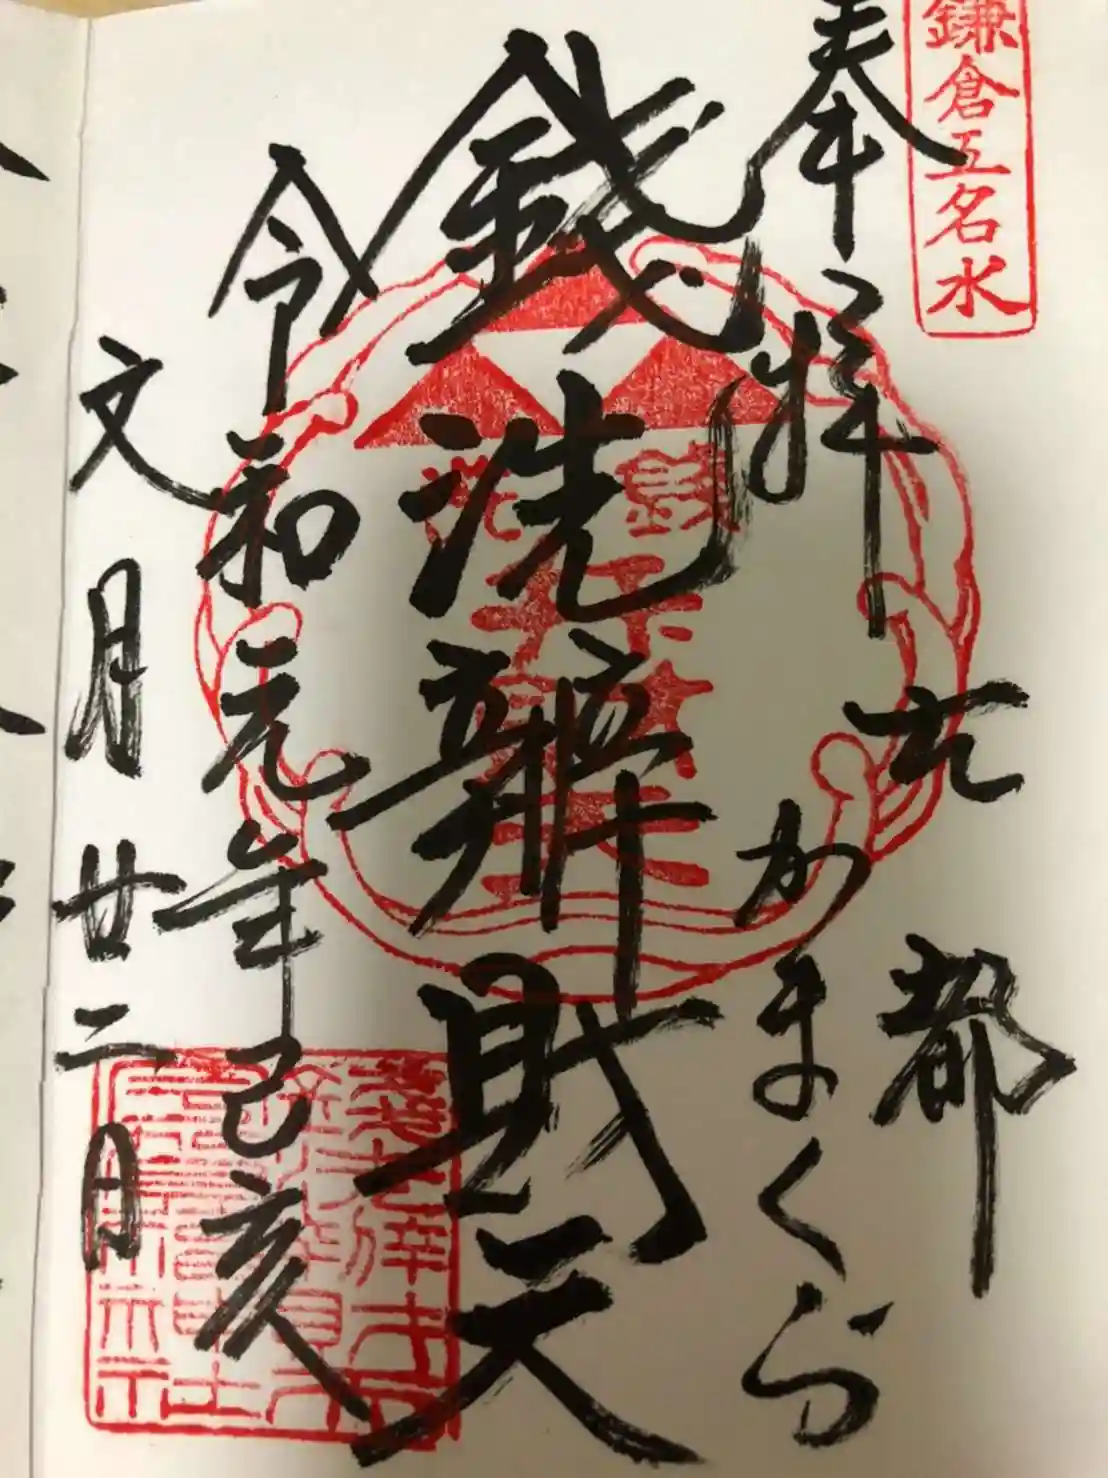 鎌倉五名水
奉拝
古都
かまくら
銭洗辨財天
銭洗
令和元年己亥
文月廿二日